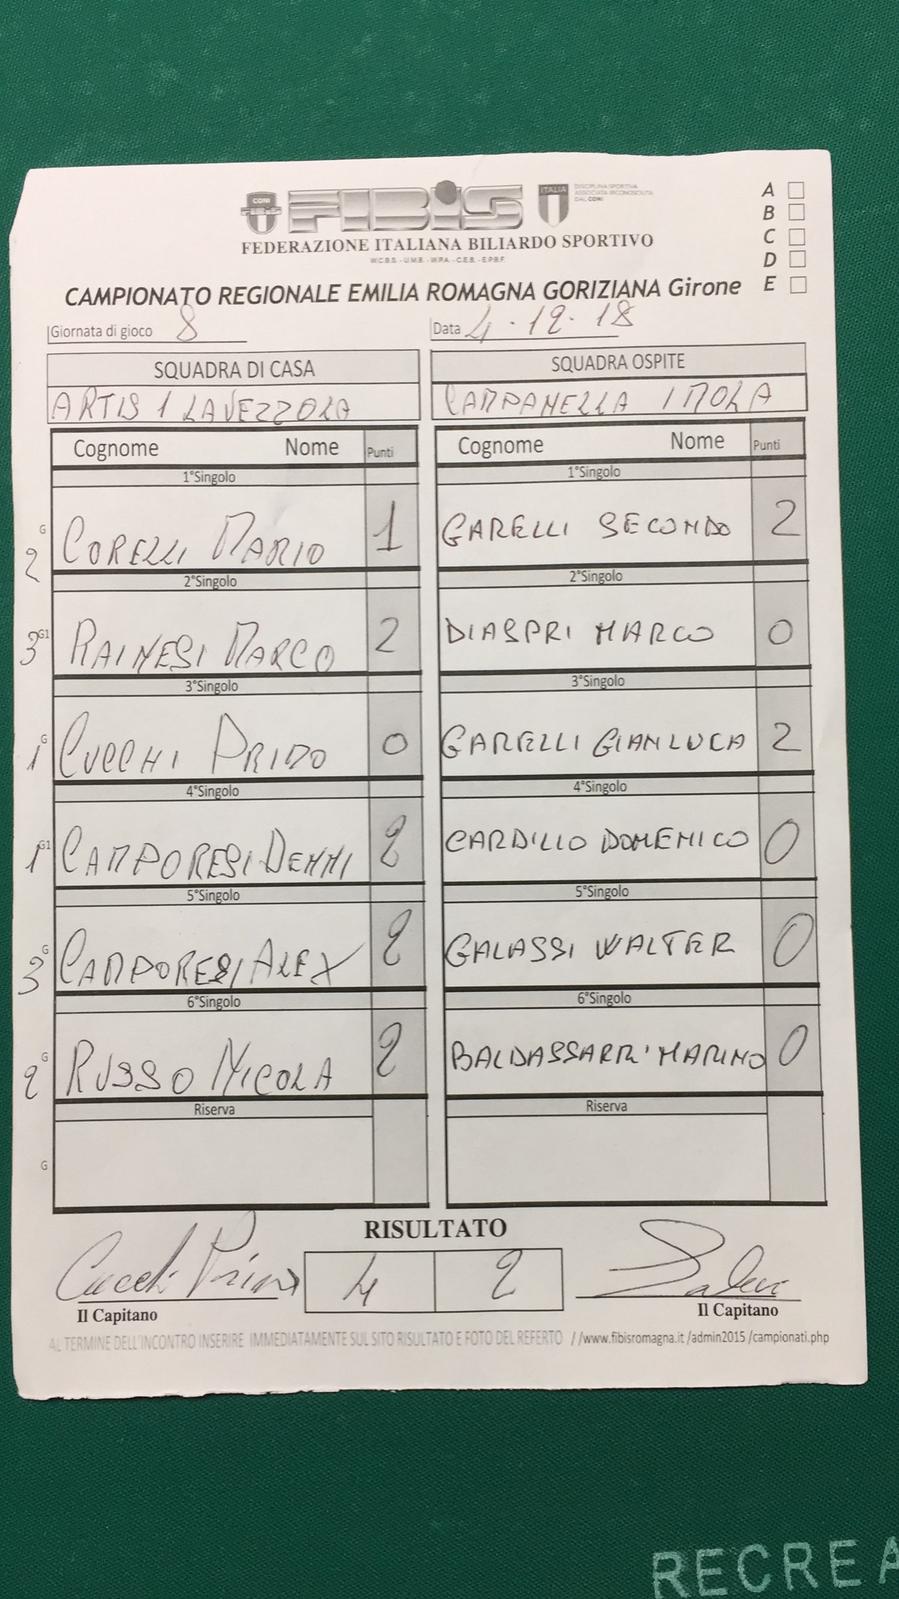 CONI
FIBiS
ITALIA
DISCIPLINA SPORTIVA
ASSOCIATA RICONOSCIUTA
DAL CONI
FEDERAZIONE ITALIANA BILIARDO SPORTIVO
W.C.B.S. - U.M.B. - W.P.A. - C.E.B. - E.P.B.F.
A
B
C
D
E
CAMPIONATO REGIONALE EMILIA ROMAGNA GORIZIANA Girone
Giornata di gioco 8 Data 4.12.18
SQUADRA DI CASA SQUADRA OSPITE
ARTIS 1 LAVEZZOLA CAMPANELLA IMOLA
Cognome Nome Punti Cognome Nome Punti
1°Singolo 1°Singolo
G 2 CORELLI MARIO 1 GARELLI SECONDO 2
2°Singolo 2°Singolo
G1 3 RAINESI MARCO 2 DIASPRI MARCO 0
3°Singolo 3°Singolo
G 1 CUCCHI PRIMO 0 GARELLI GIANLUCA 2
4°Singolo 4°Singolo
G1 1 CAMPORESI DENNI 2 CARDILLO DOMENICO 0
5°Singolo 5°Singolo
G 3 CAMPORESI ALEX 2 GALASSI WALTER 0
6°Singolo 6°Singolo
G 2 RUSSO NICOLA 2 BALDASSARRI MARINO 0
Riserva Riserva
G
RISULTATO
Cucchi Primo 4 2
Il Capitano Il Capitano
AL TERMINE DELL'INCONTRO INSERIRE IMMEDIATAMENTE SUL SITO RISULTATO E FOTO DEL REFERTO //www.fibisromagna.it/admin2015/campionati.php
RECREA